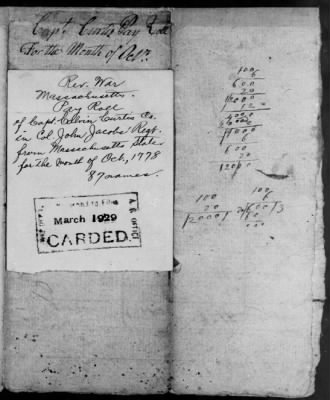 Capt. Curtis Pay Roll
For the Month of Octr.
Rev. War
Massachusetts.
Pay Roll
of Capt. Calvin Curtis Co.
in Col. John Jacobs' Regt.
from Massachusetts State
for the month of Oct, 1778
87 names.
March 1929
CARDED.
100
6
600
20
12000
12
6
600
20
12000
100
20
2000
100
6